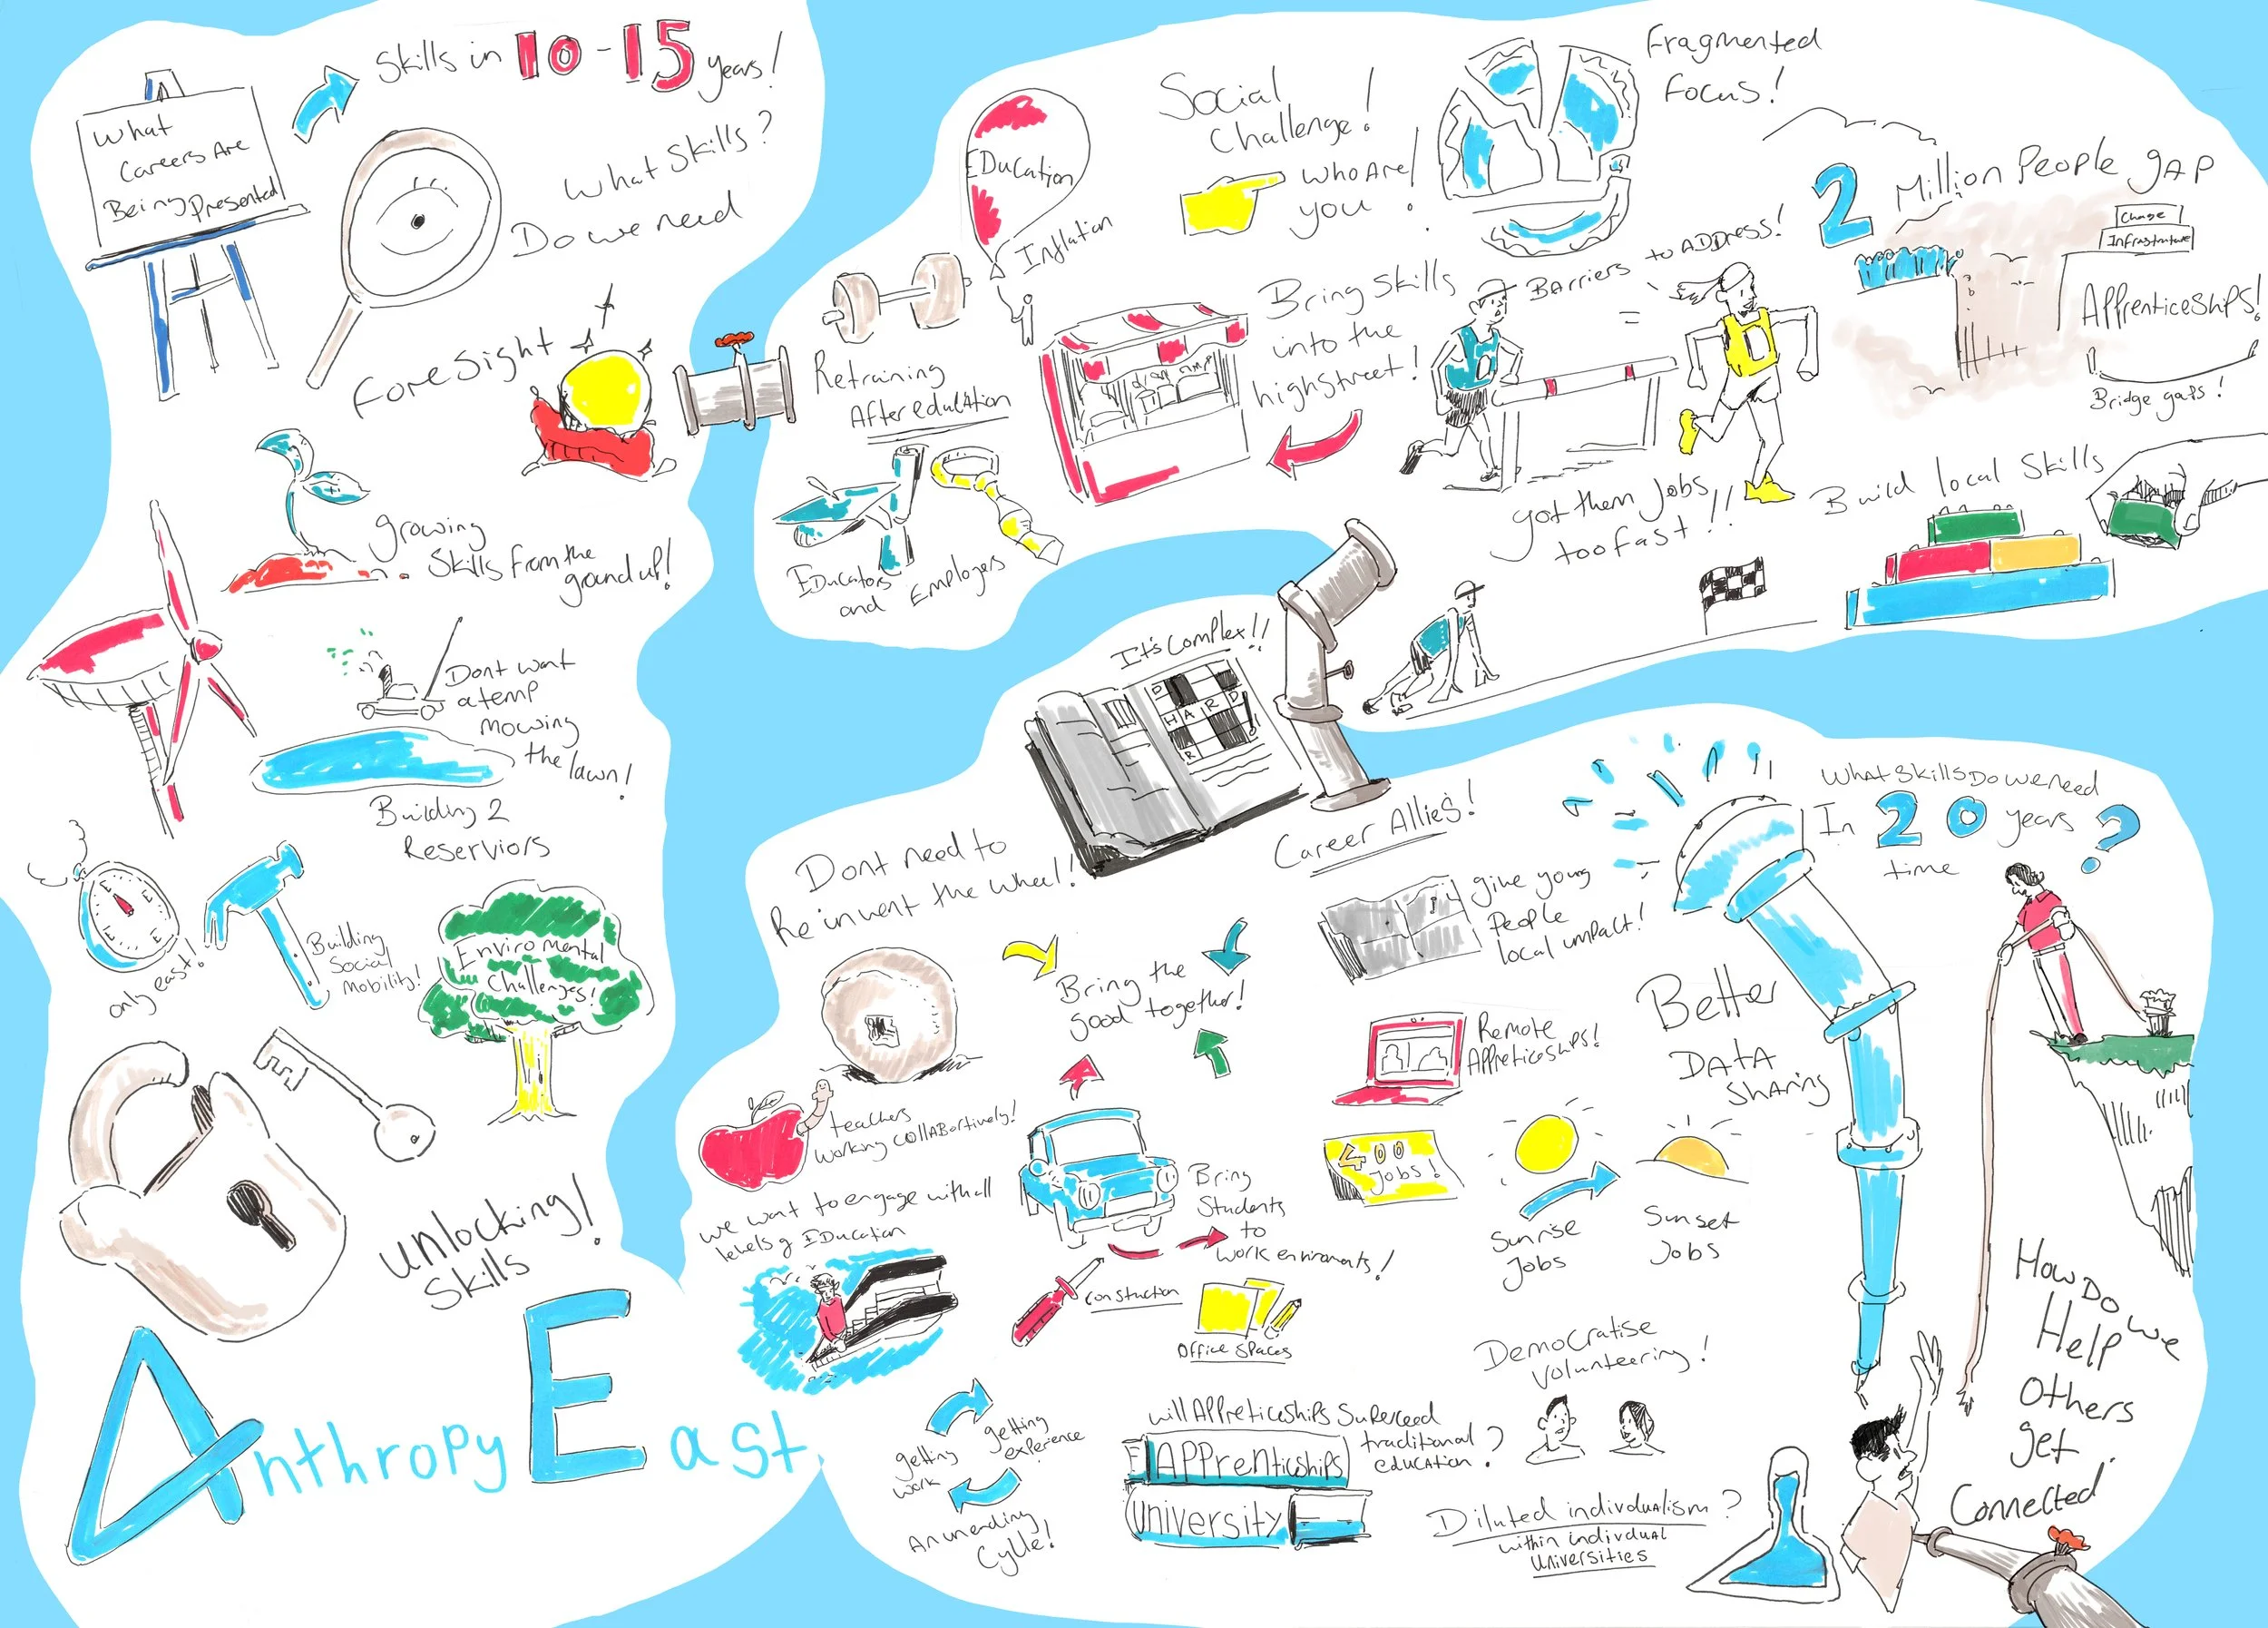 What
Careers Are
Being Presented
Skills in 10-15 years!
What Skills?
Do we need
Foresight
growing
Skills from the
ground up!
Dont want
a temp
mowing
the lawn!
Building 2
Reserviors
E
E
E
E
only east!
Building
Social
Mobility!
Enviromental
Challenges!
unlocking!
Skills
Anthropy East
EDucation
Inflation
Retraining
After education
EDucators
and Employers
Social
Challenge!
Who Are
you!
Fragmented
Focus!
Bring Skills
into the
highstreet!
Barriers to ADDress!
=
got them Jobs
too fast!!
2 Million People gap
Change
Infrastructure
Apprenticeships!
Bridge gaps!
Build local Skills
It's Complex!!
D
HARD
R
Career Allies!
Dont need to
Reinvent the wheel!
Bring the
good together!
teachers
working collabortively!
we want to engage with all
levels of EDucation
Bring
Students
to
work enviroments!
Construction
Office Spaces
getting
work
getting
experience
An unending
Cylle!
give young
People
local impact!
Remote
Appreticeships!
400
Jobs!
Sunrise
Jobs
Sunset
Jobs
Democratise
volunteering!
will Appreticeships Superceed
traditional
education?
Apprenticeships
University
Diluted indivdualism?
within indivdual
universities
Better
Data
Sharing
What Skills Do we need
In 20 years?
time
How Do we
Help
Others
get
Connected.